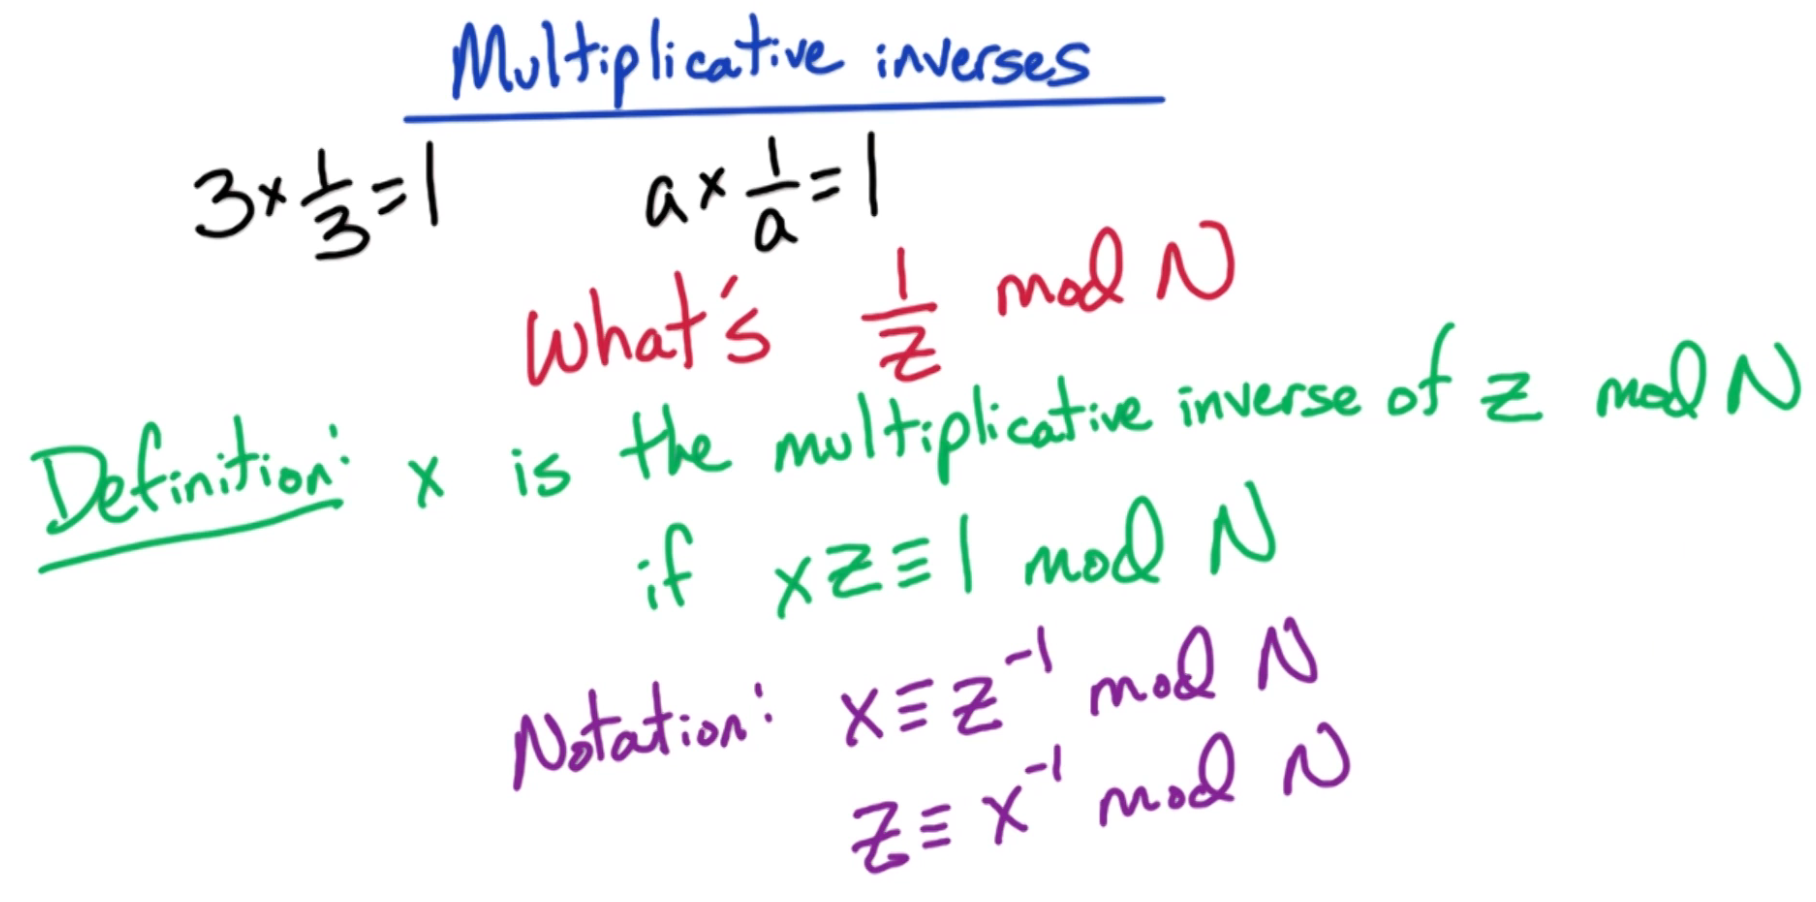 Multiplicative inverses
3 × 1/3 = 1    a × 1/a = 1
What's 1/z mod N
Definition: x is the multiplicative inverse of z mod N
if xz ≡ 1 mod N
Notation: x ≡ z⁻¹ mod N
z ≡ x⁻¹ mod N